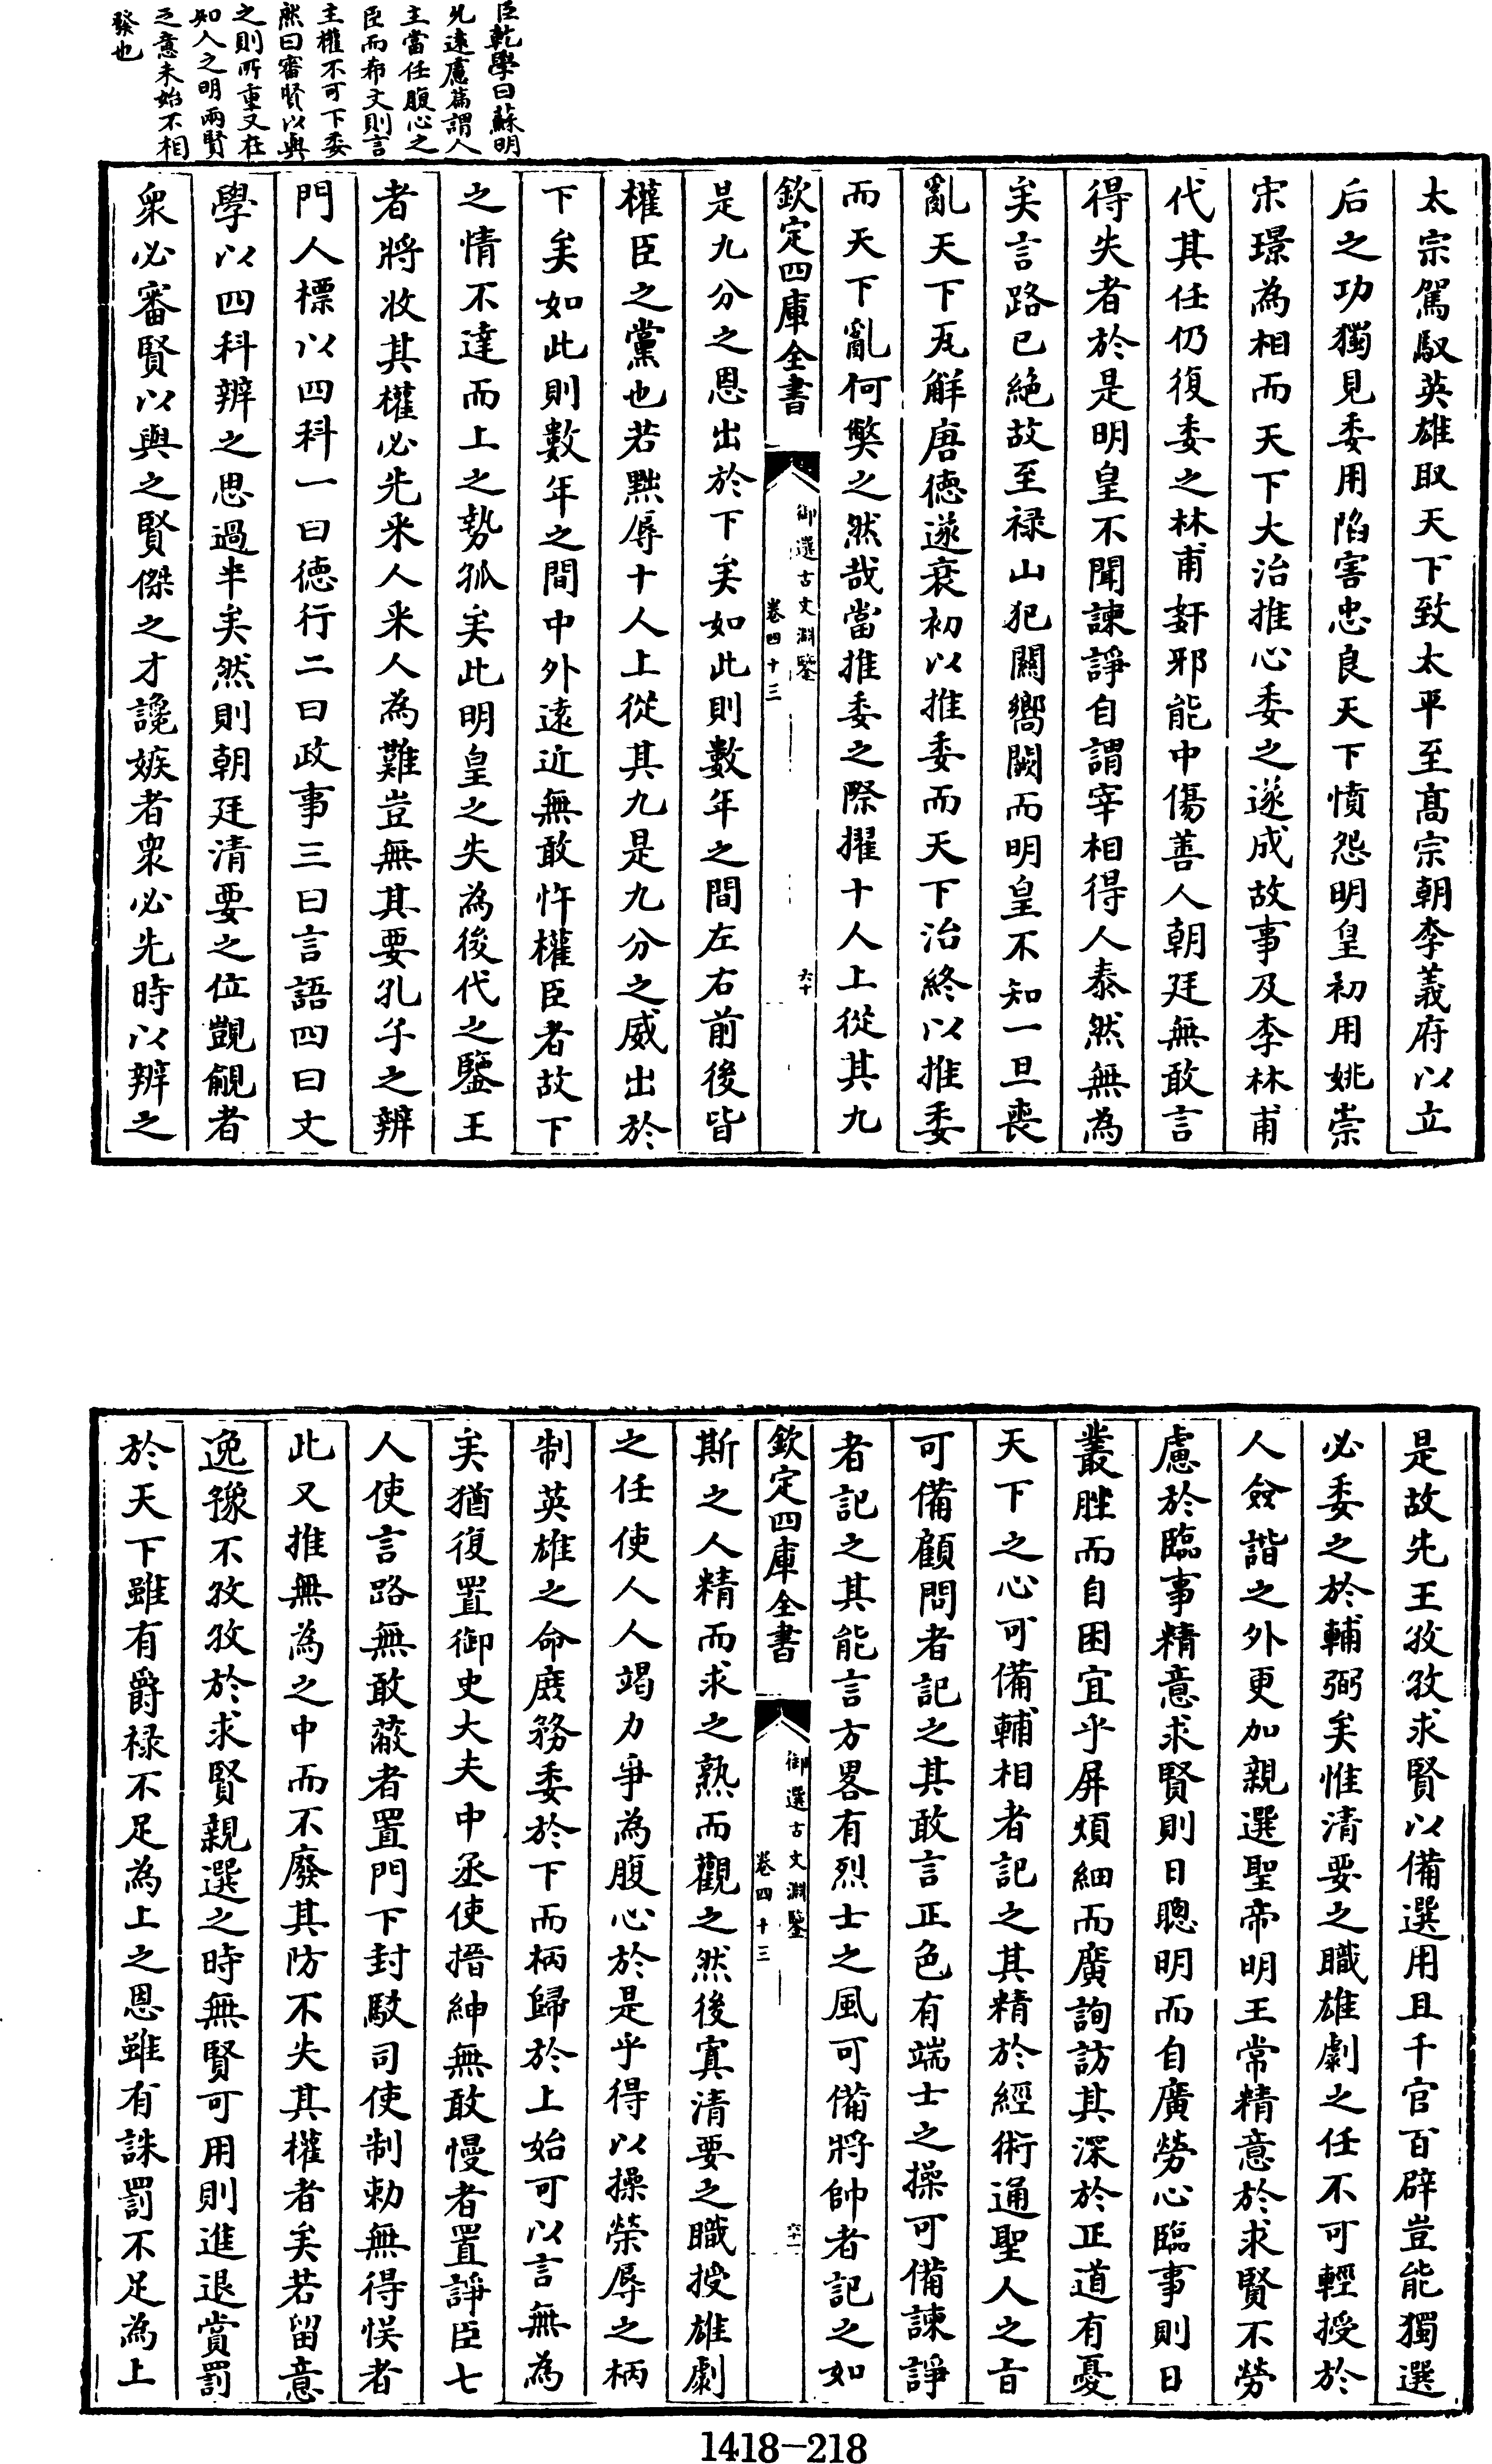 臣乾學曰蘇明
允遠慮篇謂人
主當任腹心之
臣而希文則言
主權不可下委
然曰審賢以與
之則所重又在
知人之明兩賢
之意未始不相
發也
太宗駕馭英雄取天下致太平至髙宗朝李義府以立
后之功獨見委用陷害忠良天下憤怨明皇初用姚崇
宋璟為相而天下大治推心委之遂成故事及李林甫
代其任仍復委之林甫姧邪能中傷善人朝廷無敢言
得失者於是明皇不聞諫諍自謂宰相得人泰然無為
矣言路已絶故至禄山犯闗嚮闕而明皇不知一旦喪
亂天下瓦解唐徳遂衰初以推委而天下治終以推委
而天下亂何獘之然哉當推委之際擢十人上從其九
欽定四庫全書
御選古文淵鑒
卷四十三
六十
是九分之恩出於下矣如此則數年之間左右前後皆
權臣之黨也若黜辱十人上從其九是九分之威出於
下矣如此則數年之間中外逺近無敢忤權臣者故下
之情不達而上之勢孤矣此明皇之失為後代之鑒王
者將收其權必先采人采人為難豈無其要孔子之辨
門人標以四科一曰徳行二曰政事三曰言語四曰文
學以四科辨之思過半矣然則朝廷清要之位覬覦者
衆必審賢以與之賢傑之才讒嫉者衆必先時以辨之
是故先王孜孜求賢以備選用且千官百辟豈能獨選
必委之於輔弼矣惟清要之職雄劇之任不可輕授於
人僉諧之外更加親選聖帝明王常精意於求賢不勞
慮於臨事精意求賢則日聰明而自廣勞心臨事則日
叢脞而自困宜乎屏煩細而廣詢訪其深於正道有憂
天下之心可備輔相者記之其精於經術通聖人之旨
可備顧問者記之其敢言正色有端士之操可備諫諍
者記之其能言方畧有烈士之風可備將帥者記之如
欽定四庫全書
御選古文淵鑒
卷四十三
六十一
斯之人精而求之熟而觀之然後寘清要之職授雄劇
之任使人人竭力爭為腹心於是乎得以操榮辱之柄
制英雄之命庻務委於下而柄歸於上始可以言無為
矣猶復置御史大夫中丞使搢紳無敢慢者置諍臣七
人使言路無敢蔽者置門下封駮司使制勅無得悞者
此又推無為之中而不廢其防不失其權者矣若留意
逸豫不孜孜於求賢親選之時無賢可用則進退賞罰
於天下雖有爵禄不足為上之恩雖有誅罰不足為上
1418-218